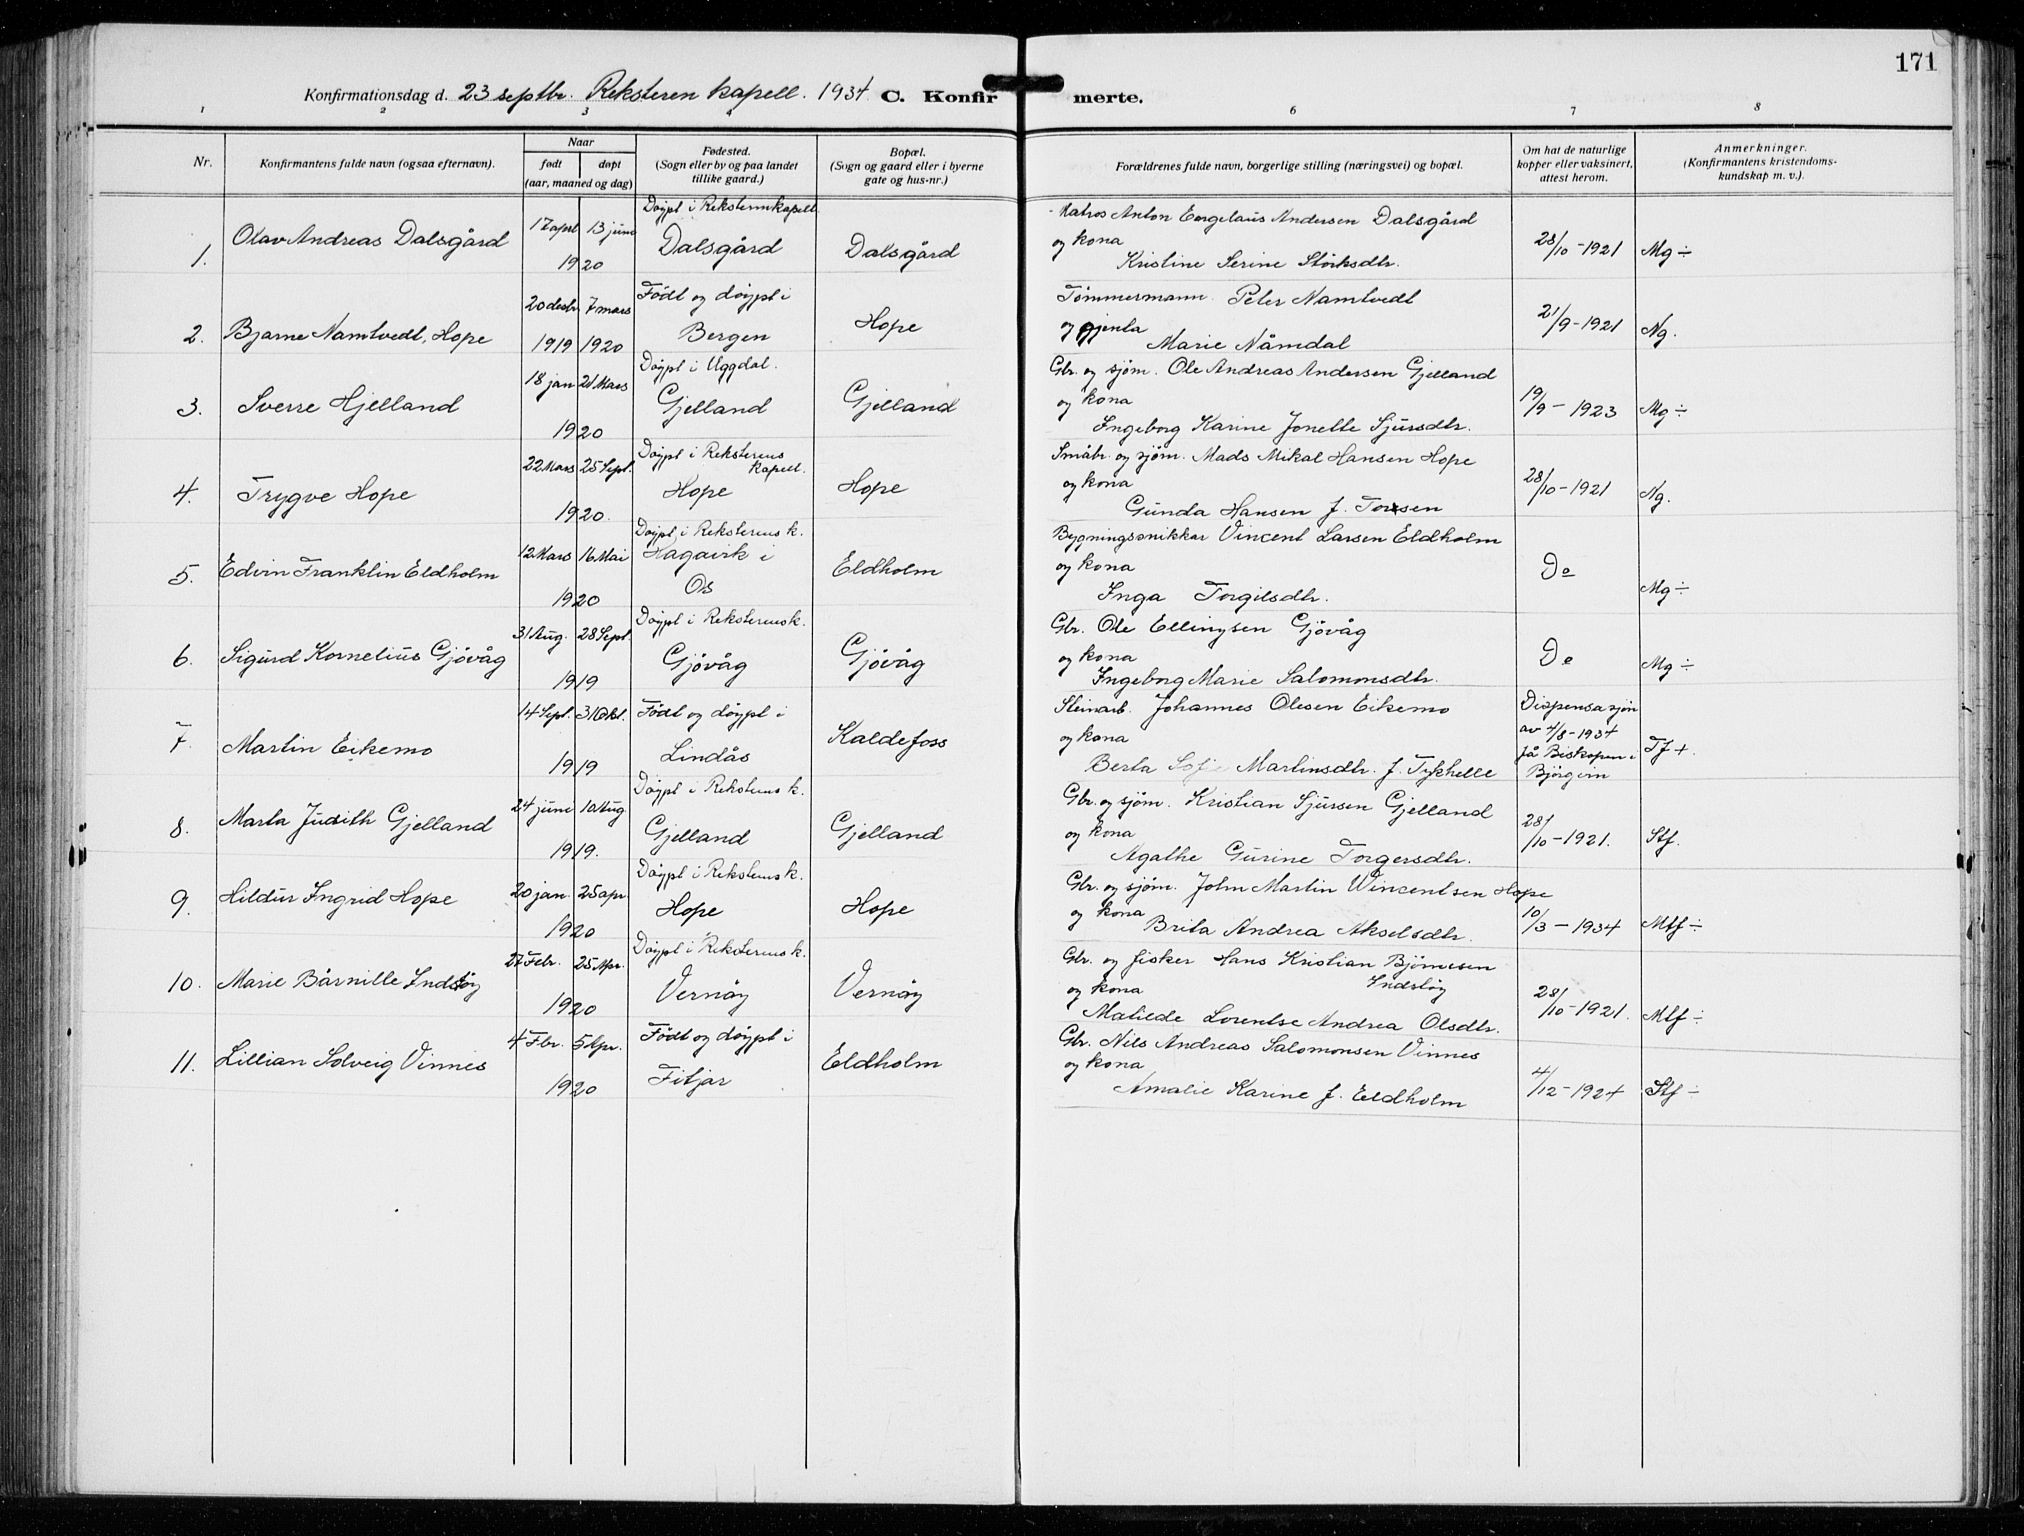 171
Konfirmationsdag d. 23 septbr. Reksteren kapell. 1934. C. Konfirmerte.
1 2 3 4 6 7 8
Nr. Konfirmantens fulde navn (ogsaa efternavn). Naar født døpt (aar, maaned og dag) Fødested. (Sogn eller by og paa landet tillike gaard.) Bopæl. (Sogn og gaard eller i byerne gate og hus-nr.) Forældrenes fulde navn, borgerlige stilling (næringsvei) og bopæl. Om hat de naturlige kopper eller vaksinert, attest herom. Anmerkninger. (Konfirmantens kristendoms-kundskap m. v.).
1. Olav Andreas Dalsgård 17 aprl 13 juni 1920 Døypt i Reksteren kapell. Dalsgård Dalsgård Matros Anton Engelaus Andersen Dalsgård
og kona
Kristine Serine Størksdtr. 28/10-1921 Mg ÷
2. Bjarne Namtvedt, Hope 20 desbr 1919 7 mars 1920 Født og døypt i Bergen Hope Tømmermann Peter Namtvedt
og gjenta
Marie Nåmdal 21/9-1921 Ng.
3. Sverre Hjelland 18 jan 21 Mars 1920 Døypt i Uggdal. Gjelland Gjelland Gbr. og sjøm. Ole Andreas Andersen Gjelland
og kona
Ingeborg Karine Jonette Sjursdtr. 19/9-1923 Mg ÷
4. Trygve Hope 22 Mars 25 Sept. 1920. Døypt i Reksterens kapell. Hope Hope Småbr. og sjøm. Mads Mikal Hansen Hope
og kona
Gunda Hansen f. Torsen 28/10-1921 Ng.
5. Edvin Franklin Eldholm 12 Mars 16 Mai 1920 Døypt i Reksterens k. Hagavik i Os Eldholm Bygningssnikkar Vincent Larsen Eldholm
og kona
Inga Torgilsdtr. Do Mg ÷
6. Sigurd Kornelius Gjøvåg 31 Aug. 28 Sept. 1919 Døypt i Reksterens k. Gjøvåg Gjøvåg Gbr. Ole Ellingsen Gjøvåg
og kona
Ingeborg Marie Salomonsdtr. Do Mg ÷
7. Martin Eikemo 14 Sept. 31 Okt. 1919 Født og døypt i Lindås Kaldefoss Steinarb. Johannes Olesen Eikemo
og kona
Berta Sofie Martinsdtr. f. Dispensasjon av 4/8-1934 få Biskopen i Bjørgvin Tf +.
8. Marta Judith Gjelland 24 juni 10 Aug 1919. Døypt i Reksterens k. Gjelland Gjelland Gbr. og sjøm. Kristian Sjursen Gjelland
og kona
Agathe Gurine Torgersdtr. 28/10-1921. Stf.
9. Hildur Ingrid Hope 20 jan. 25 apr. 1920 Døypt i Reksterens k. Hope Hope Gbr. og sjøm. John Martin Wincentsen Hope
og kona
Brita Andrea Akselsdtr. 10/3-1934 Mtf ÷
10. Marie Bårnille Indstøy 27 Febr. 25 Apr. 1920 Døypt i Reksterens k. Vernøy Vernøy Gbr. og fisker Hans Kristian Bjørnesen Indstøy
og kona
Matilde Lorentse Andrea Olsdtr. 28/10-1921. Mtf ÷
11. Lillian Solveig Vinnes 4 Fbr. 5 Apr. 1920 Født og døypt i Fitjar Eldholm Gbr. Nils Andreas Salomonsen Vinnes
og kona
Amalie Karine f. Eldholm 4/12-1924 Stf ÷